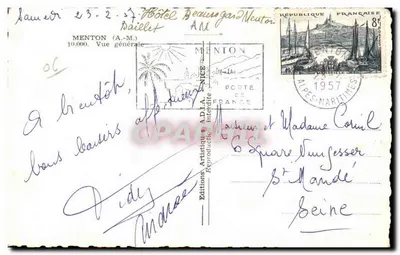 Samedi 23-2-57 Hôtel Beauregard Menton
A M
MENTON (A.-M.)
10.000. Vue générale
06
A bientôt,
bons baisers affectueux
MENTON
PORTE
DE
FRANCE
REPUBLIQUE FRANÇAISE
8F
MENTON
1957
ALPES-MARITIMES
Editions Artistiques
NICE
Reproduction Interdite
Monsieur et Madame
6 Square Nungesser
St Mandé
Seine